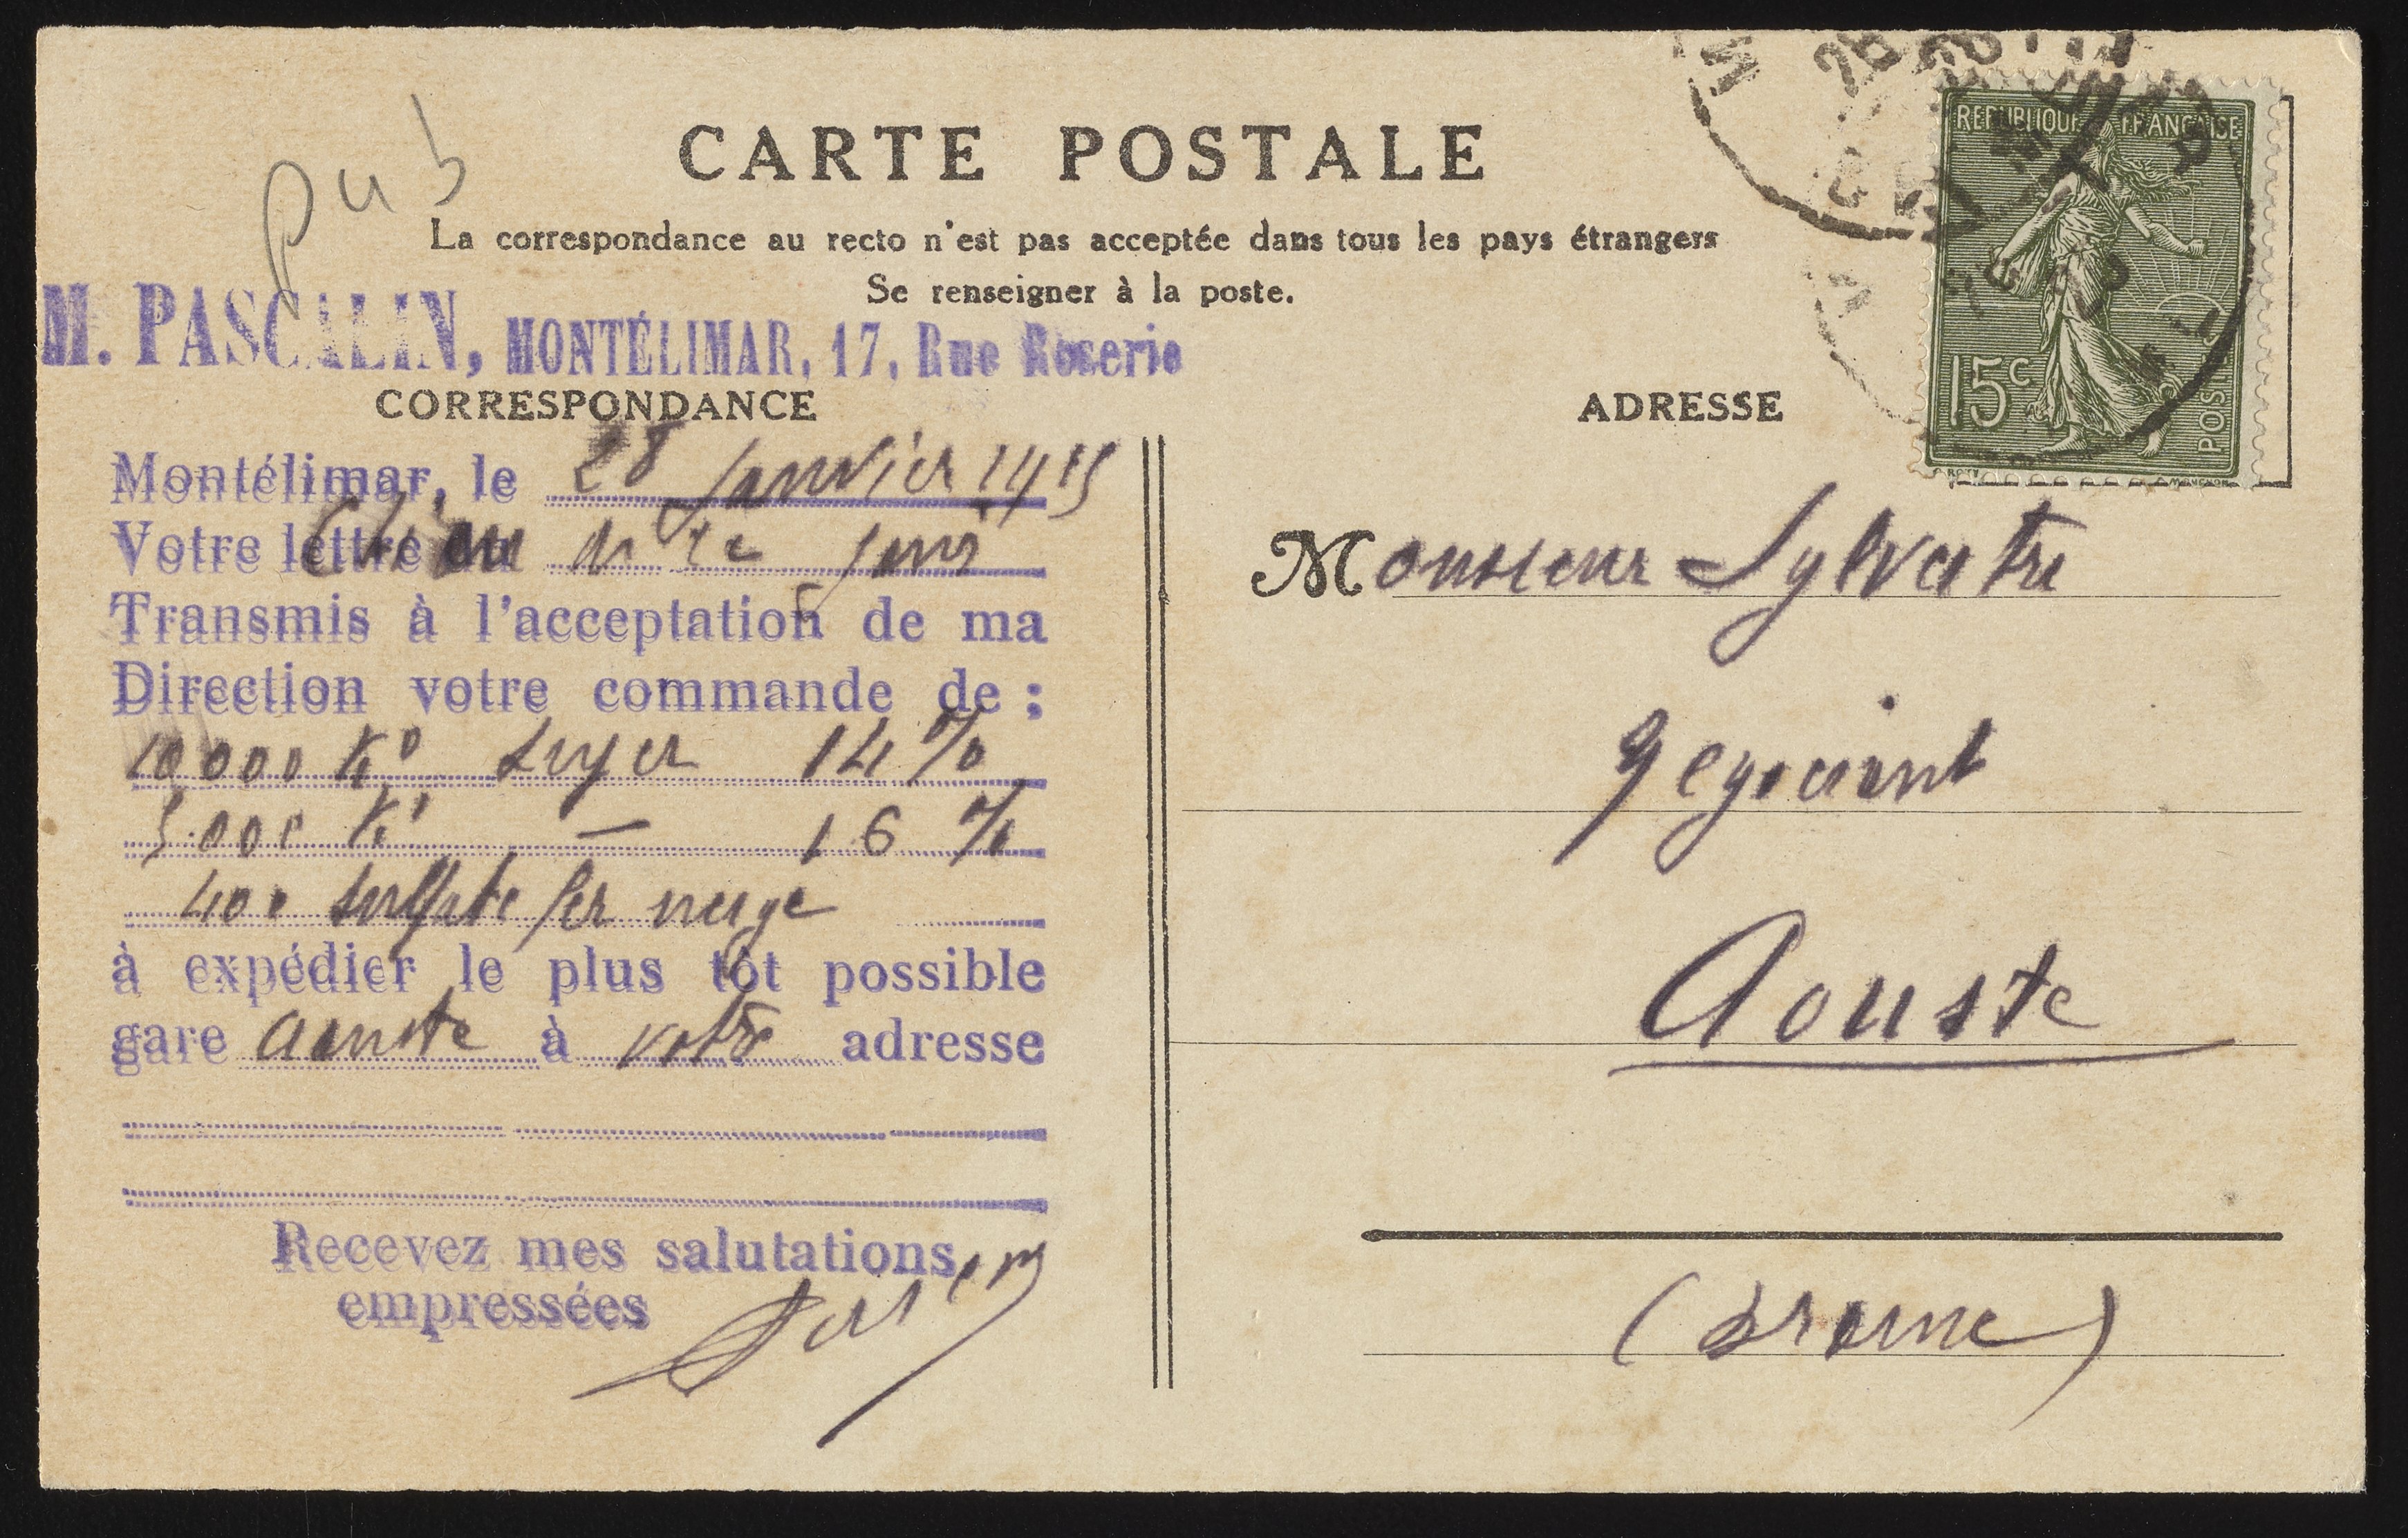 pub
CARTE POSTALE
La correspondance au recto n'est pas acceptée dans tous les pays étrangers
Se renseigner à la poste.
M. PASCALIN, MONTÉLIMAR, 17, Rue Roserie
CORRESPONDANCE
ADRESSE
REPUBLIQUE FRANÇAISE
15c
POSTES
Montélimar, le 28 Janvier 1915
Votre lettre du
Transmis à l'acceptation de ma
Direction votre commande de :
10000 K° super 14 %
5.000 K° — 16 %
400 sulfate fer neige
à expédier le plus tôt possible
gare aouste à votre adresse
Recevez mes salutations
empressées
Monsieur Sylvatre
Negociant
Aouste
(Drome)